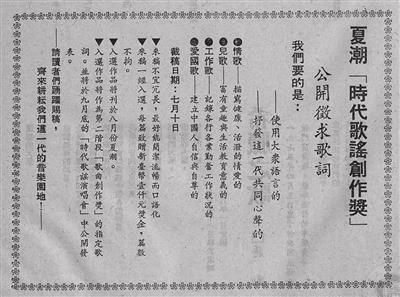 夏潮「時代歌謠創作獎」
公開徵求歌詞
我們要的是:
——使用大衆語言的
——抒發這一代共同心聲的
情歌——描寫健康、活潑的情愛的
兒歌——富有童趣與生活教育意義的
工作歌——記錄各行各業勤奮工作狀況的
愛國歌——建立中國人自信與自尊的
截稿日期:七月十日
▼來稿不宜冗長,最好能簡潔流暢而口語化
▼來稿一經入選,每篇致贈新臺幣壹仟元獎金,篇數
不拘。
▼入選作品將刊於八月份夏潮。
▼入選作品將作為第二階段「歌曲創作獎」的指定歌
詞。並將於九月底的「時代歌謠演唱會」中公開發
表。
請讀者們踴躍投稿,
齊來耕耘我們這一代的音樂園地——